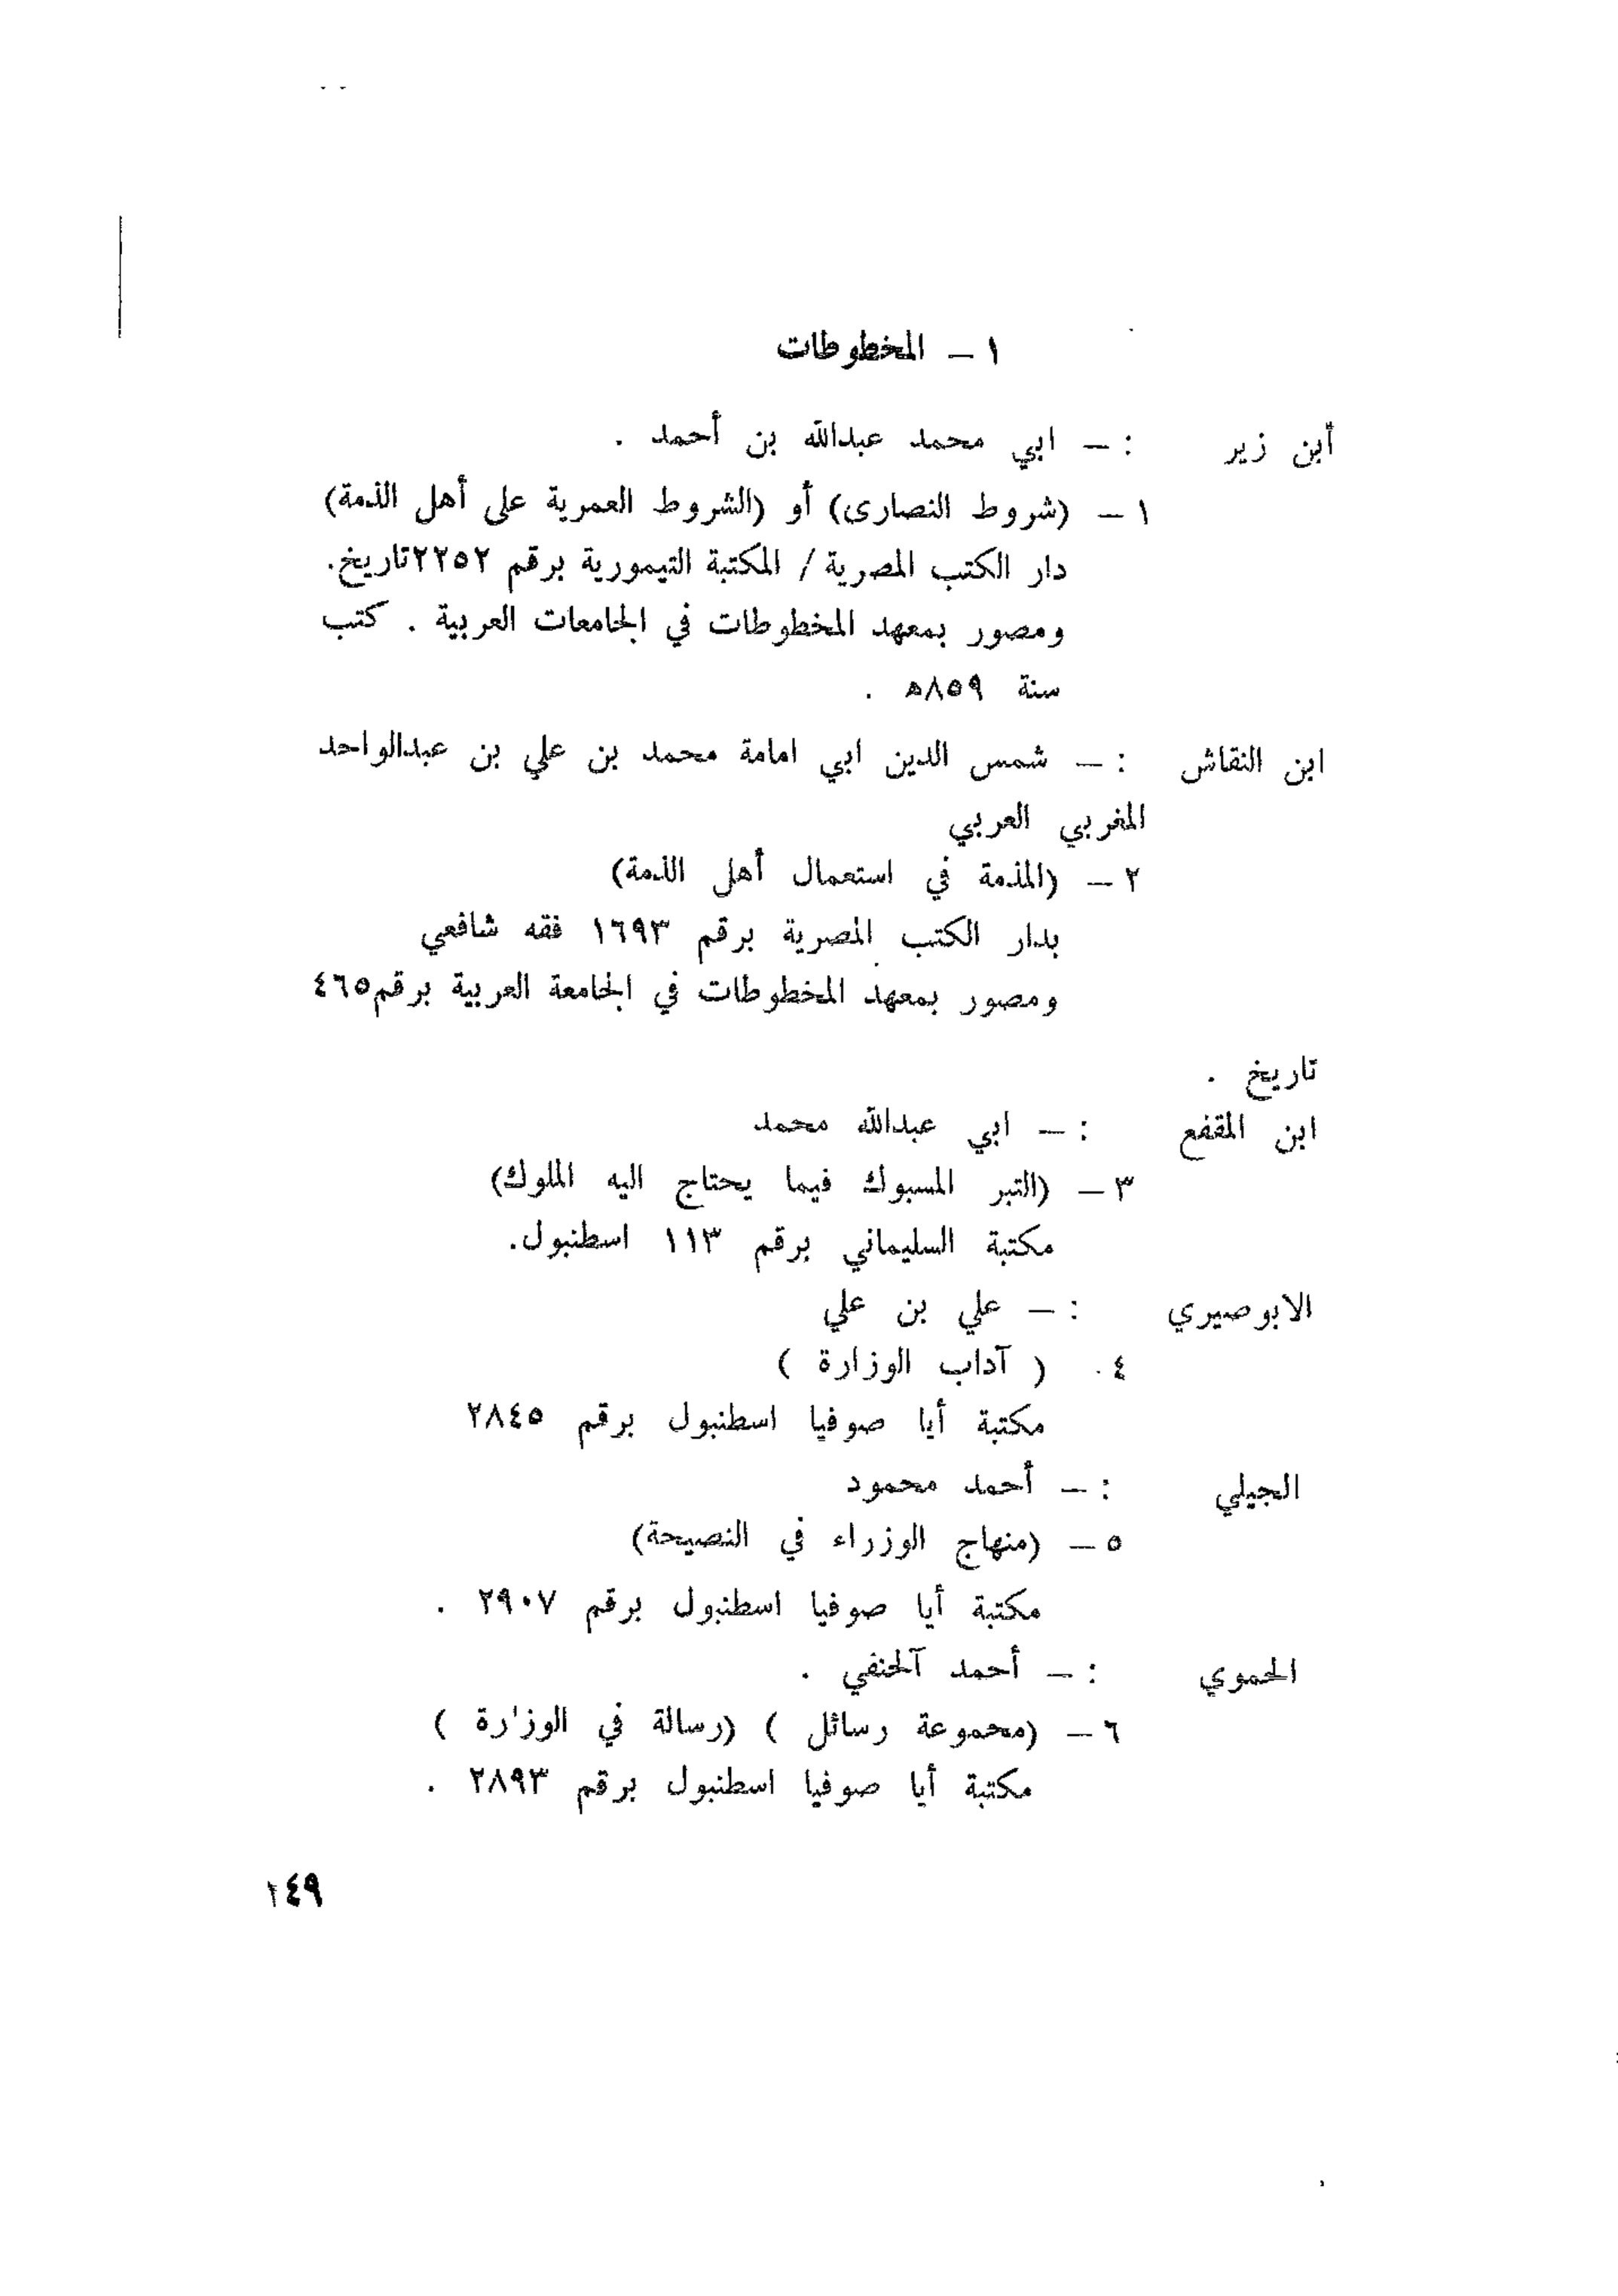 ١ – المخطوطات
أبن زير : – ابي محمد عبدالله بن أحمد .
١ – (شروط النصارى) أو (الشروط العمرية على أهل الذمة)
دار الكتب المصرية / المكتبة التيمورية برقم ٢٢٥٢تاريخ.
ومصور بمعهد المخطوطات في الجامعات العربية . كتب
سنة ٨٥٩ه .
ابن النقاش : – شمس الدين ابي امامة محمد بن علي بن عبدالواحد
المغربي العربي
٢ – (المذمة في استعمال أهل الذمة)
بدار الكتب المصرية برقم ١٦٩٣ فقه شافعي
ومصور بمعهد المخطوطات في الجامعة العربية برقم٤٦٥
تاريخ .
ابن المقفع : – ابي عبدالله محمد
٣ – (التبر المسبوك فيما يحتاج اليه الملوك)
مكتبة السليماني برقم ١١٣ اسطنبول.
الابوصيري : – علي بن علي
٤. ( آداب الوزارة )
مكتبة أيا صوفيا اسطنبول برقم ٢٨٤٥
الجيلي : – أحمد محمود
٥ – (منهاج الوزراء في النصيحة)
مكتبة أيا صوفيا اسطنبول برقم ٢٩٠٧ .
الحموي : – أحمد آلحنفي .
٦ – (مجموعة رسائل ) (رسالة في الوزارة )
مكتبة أيا صوفيا اسطنبول برقم ٢٨٩٣ .
١٤٩